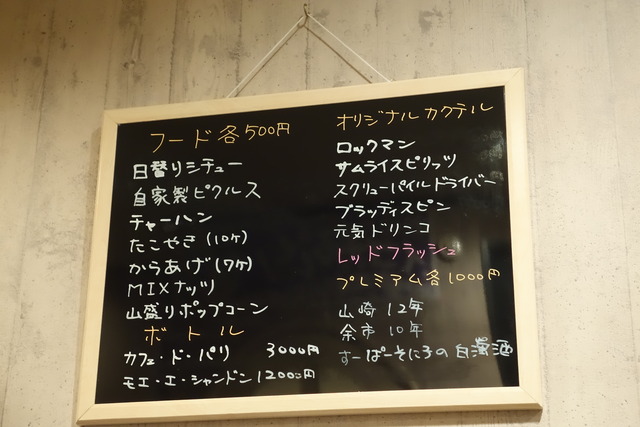 フード各500円
日替りシチュー
自家製ピクルス
チャーハン
たこやき(10ヶ)
からあげ(7ヶ)
MIXナッツ
山盛りポップコーン
ボトル
カフェ・ド・パリ 3000円
モエ・エ・シャンドン 12000円
オリジナルカクテル
ロックマン
サムライスピリッツ
スクリューパイルドライバー
ブラッディスピン
元気ドリンコ
レッドフラッシュ
プレミアム各1000円
山崎 12年
余市 10年
すーぱーそに子の白濁酒